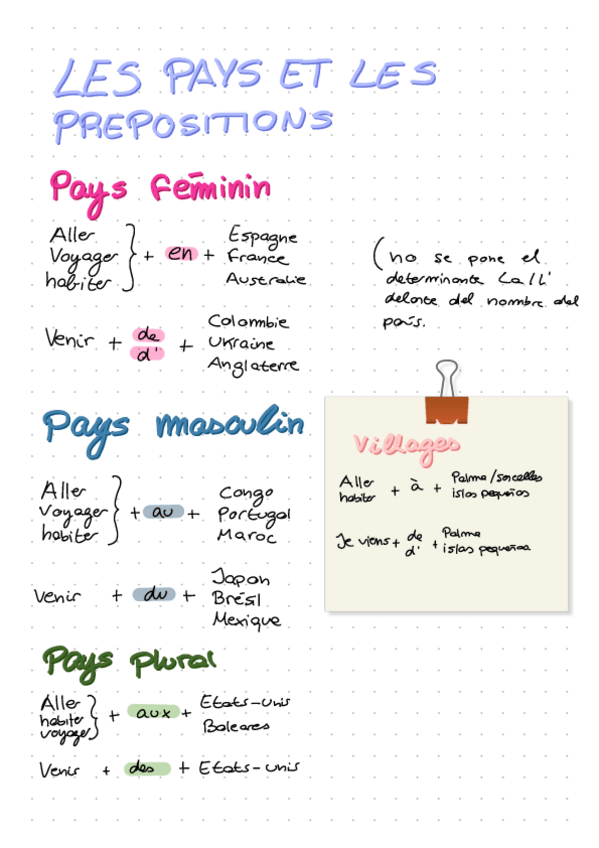 LES PAYS ET LES
PREPOSITIONS
Pays féminin
Aller
Voyager
habiter
+ en +
Espagne
France
Australie
(no se pone el
determinante La/L'
delante del nombre del
país.
Venir + de
d' +
Colombie
Ukraine
Anglaterre
Pays masculin
Aller
Voyager
habiter
+ au +
Congo
Portugal
Maroc
Venir + du +
Japon
Brésil
Mexique
Pays plural
Aller
habiter
voyager
+ aux +
Etats-unis
Baleares
Venir + des + Etats-unis
Villages
Aller
habiter
+ à +
Palma/sarcelles
islas pequeñas
Je viens + de
d' +
Palma
islas pequeñas